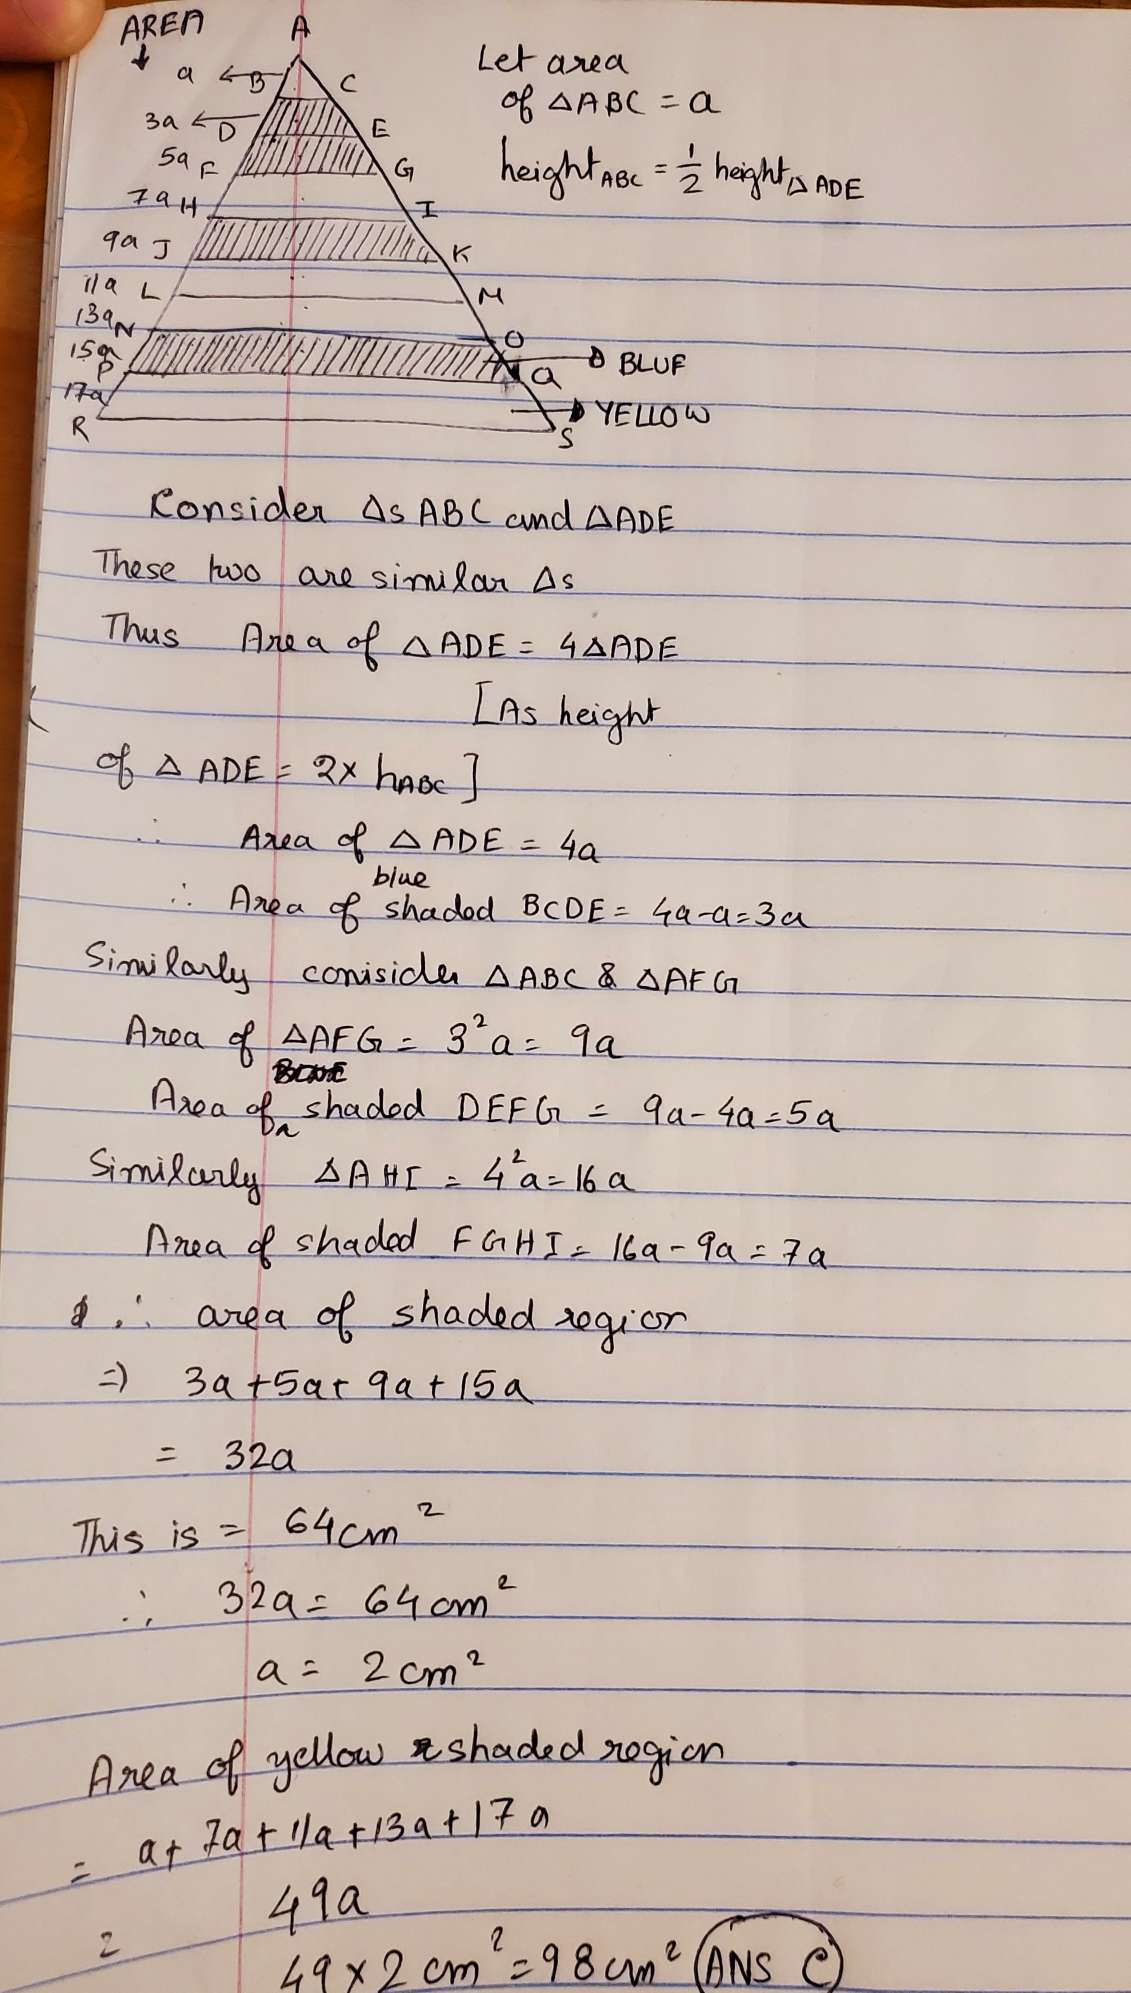 AREA
A
a
B
C
3a
D
E
5a
F
G
7a H
I
9a J
K
11a L
M
13a N
O
15a
P
Q
BLUE
17a
YELLOW
R
S
Let area
of △ABC = a
height ABC = 1/2 height △ ADE
Consider △s ABC and △ADE
These two are similar △s
Thus Area of △ADE = 4△ADE
[As height
of △ ADE = 2x hABC]
∴ Area of △ ADE = 4a
blue
∴ Area of shaded BCDE = 4a-a=3a
Similarly conisider △ABC & △AFG
Area of △AFG = 3²a = 9a
Area of shaded DEFG = 9a-4a=5a
Similarly △AHI = 4²a=16a
Area of shaded FGHI = 16a-9a=7a
∴ area of shaded region
=> 3a+5a+9a+15a
= 32a
This is = 64cm²
∴ 32a = 64cm²
a = 2cm²
Area of yellow shaded region
= a+7a+11a+13a+17a
49a
49x2cm²=98cm² ANS C